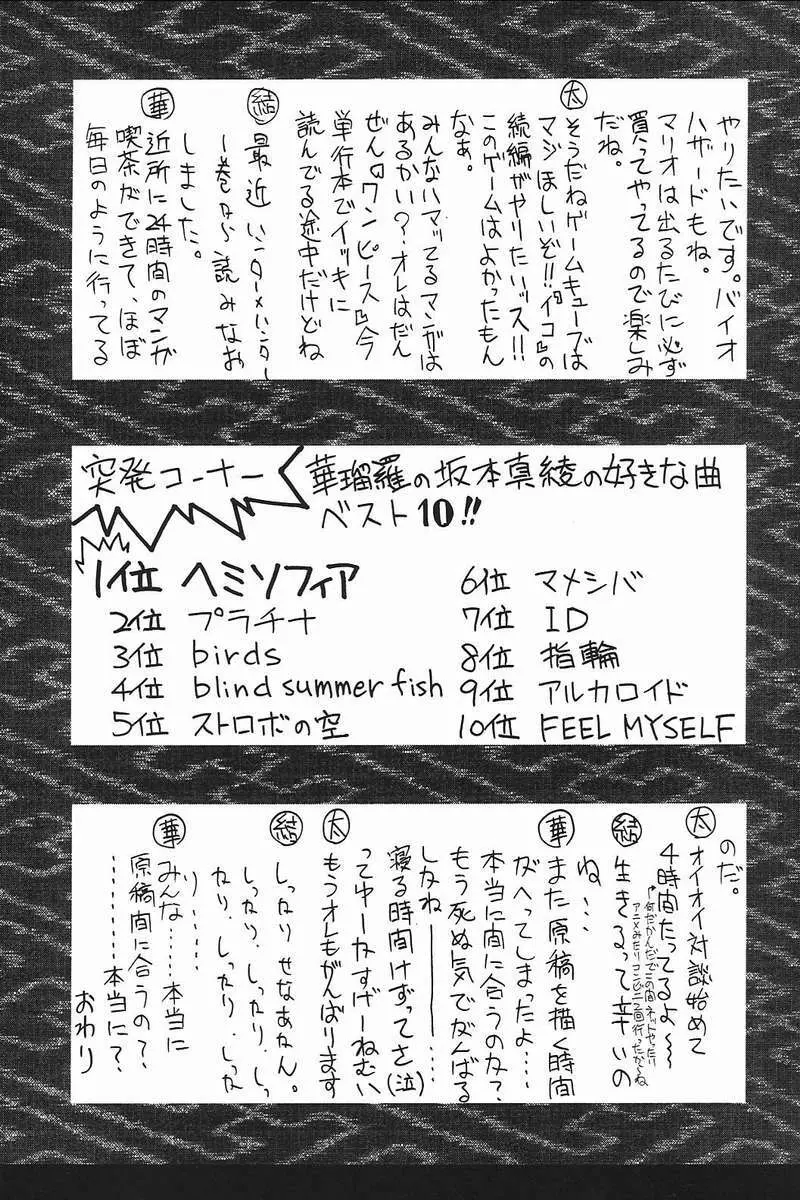 やりたいです。バイオ
ハザードもね。
マリオは出るたびに必ず
買ってやってるので楽しみ
だね。
太 そうだねゲームキューブでは
マジほしいぞ!!『イコ』の
続編がやりたいッス!!
このゲームはよかったもん
なぁ。
みんなハマッてるマンガは
あるかい?オレはだん
ぜん『ワンピース』今
単行本でイッキに
読んでる途中だけどね
結 最近ハンター×ハンター
1巻から読みなお
しました。
華 近所に24時間のマンガ
喫茶ができて、ほぼ
毎日のように行ってる
突発コーナー
華瑠羅の坂本真綾の好きな曲
ベスト10!!
1位 ヘミソフィア
2位 プラチナ
3位 birds
4位 blind summer fish
5位 ストロボの空
6位 マメシバ
7位 ID
8位 指輪
9位 アルカロイド
10位 FEEL MYSELF
のだ。
太 オイオイ対談始めて
4時間たってるよ〜
何だかんだでこの間ネットやったり
アニメみたりコンビニ2回行ったからね
結 生きるって辛いの
ね…
華 また原稿を描く時間
がへってしまったよ…
本当に間に合うのか?
もう死ぬ気でがんばる
しかね――――…
寝る時間けずってさ(泣)
太 ってゆーかすげーねむい
もうオレもがんばります
結 しっかりせなあかん。
しっかり.しっかり.しっ
かり.しったり.しった
り………
華 みんな……本当に
原稿間に合うの?
………本当に?
おわり